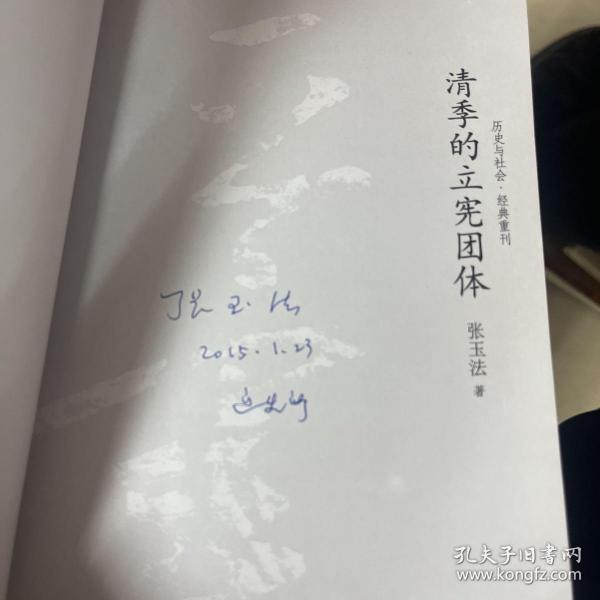 历史与社会·经典重刊
清季的立宪团体
张玉法 著
张玉法
2015.1.23
近史所
孔夫子旧书网
www.kongfz.com